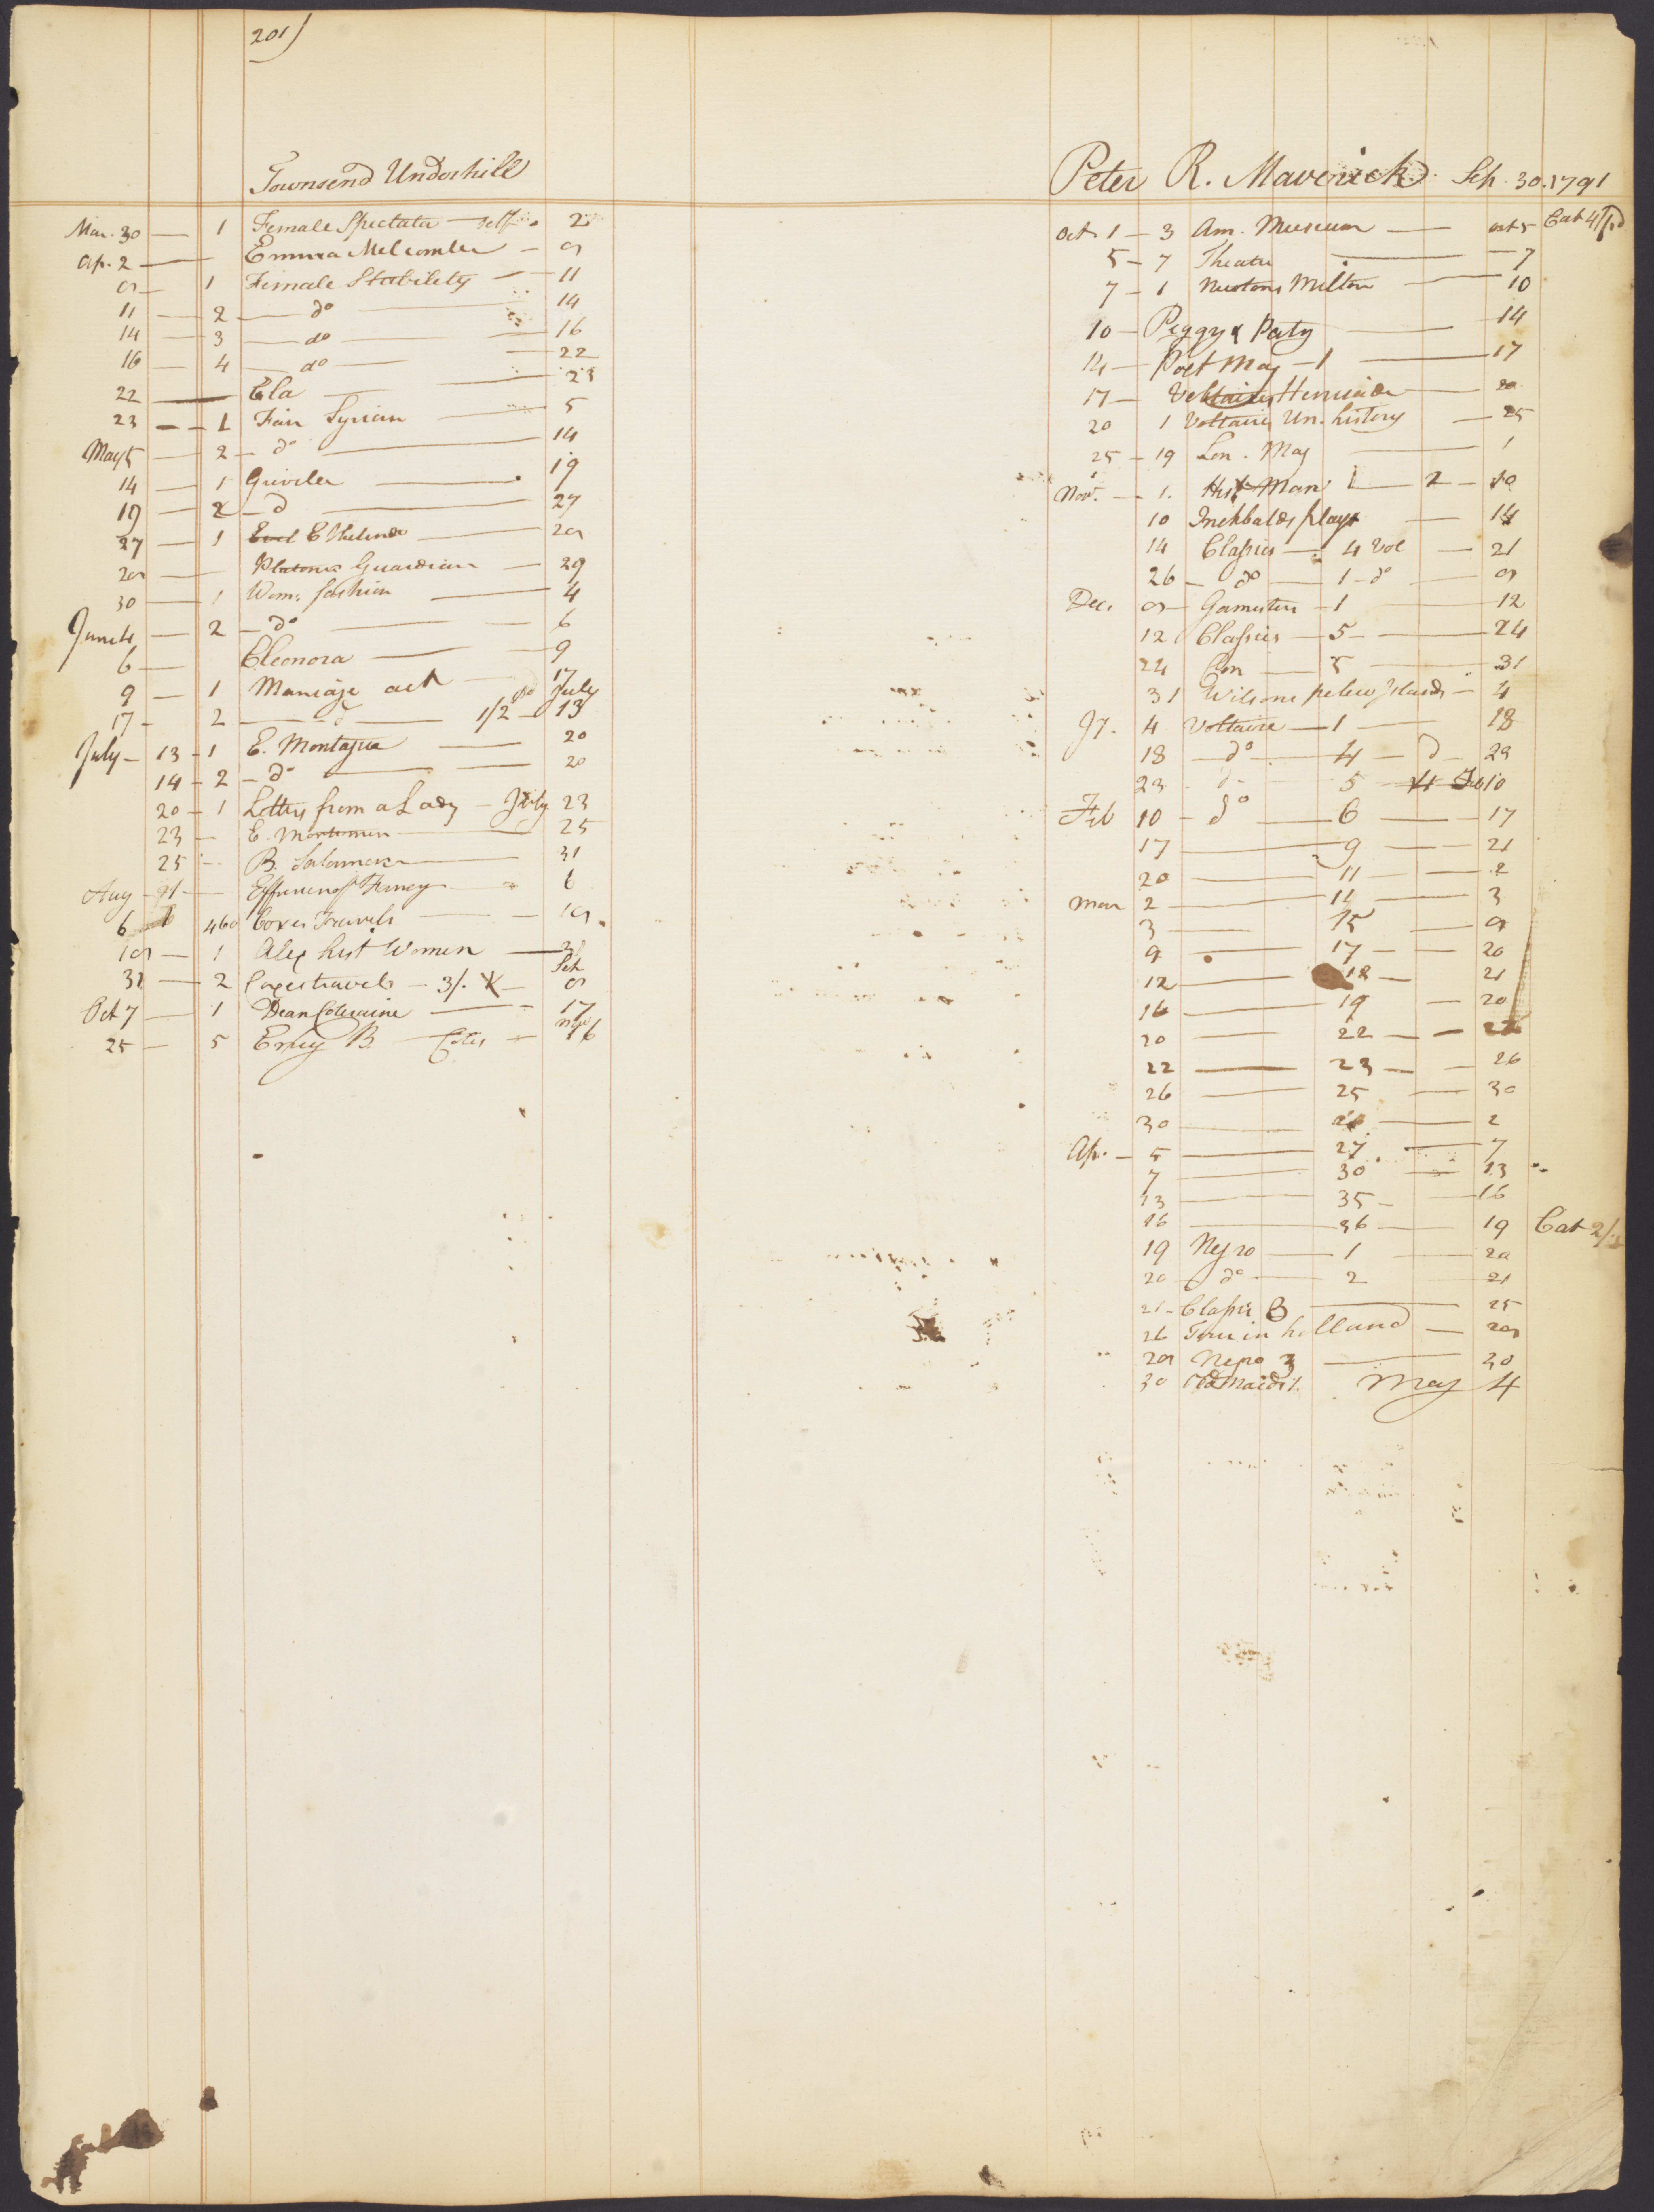 201)
Townsend Underhill
Mar. 30 — 1 Female Spectator — self 2
Ap. 2 — Emma Melcombe — 9
9 — 1 Female Stability — 11
11 — 2 — do — 14
14 — 3 — do — 16
16 — 4 — do — 22
22 — Ela — 23
23 — 1 Fair Syrian — 5
May 5 — 2 — do — 14
14 — 1 Greville — 19
19 — 2 — d — 27
27 — 1 Ethelinde — 28
28 — Platonic Guardian — 29
30 — 1 Wom. fashion — 4
June 4 — 2 — do — 6
6 — Eleonora — 9
9 — 1 Marriage act — 17
17 — 2 — d — 1/2 — July 13
July — 13 — 1 E. Montague — 20
14 — 2 — do — 20
20 — 1 Letters from a Lady — July 23
23 — E. — 25
25 — B. — 31
Aug — Effusions of Fancy — 6
6 460 Coxes Travels — 19
19 — 1 Alex hist Women — 31
31 — 2 Coxes travels — 3/. X — Sep 9
Oct 7 — 1 Dean Coleraine — 17
25 — 5 B — 16
Peter R. Maverick Sep. 30. 1791
Oct. 1 — 3 Am. Museum — Oct 5 Cat 4/
5 — 7 Theatre — 7
7 — 1 Newtons Milton — 10
10 — Peggy & Patty — 14
14 — Poet Mag — 1 — 17
17 — Voltaires Henriade — 20
20 1 Voltaires Un. history — 25
25 — 19 Lon. Mag — 1
Nov. — 1. Hist Man 1 — 2 — 10
10 Inchbalds plays — 14
14 Classics — 4 Vol — 21
26 — do — 1 — do — 9
Dec. 9 — Gamesters — 1 — 12
12 Classics — 5 — 24
24 Con — 5 — 31
31 Wilsons pelew Islands — 4
Jy. 4 Voltaire — 1 — 18
18 — do — 4 — d — 23
23 — d — 5 — Feb 10
Feb 10 — do — 6 — 17
17 — 9 — 21
20 — 11 — 2
Mar 2 — 14 — 3
3 — 15 — 9
9 — 17 — 20
12 — 18 — 21
16 — 19 — 20
20 — 22 — 22
22 — 23 — 26
26 — 25 — 30
30 — 26 — 2
Ap. — 5 — 27 — 7
7 — 30 — 13
13 — 35 — 16
16 — 36 — 19 Cat 2/
19 Negro — 1 — 20
20 — do — 2 21
21 — Classic B — 25
26 Tour in holland — 28
28 Negro 3 — 30
30 Old Maids 1. May 4